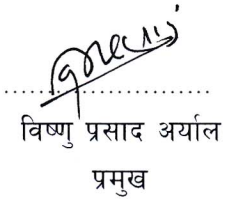 विष्णु प्रसाद अर्याल
प्रमुख